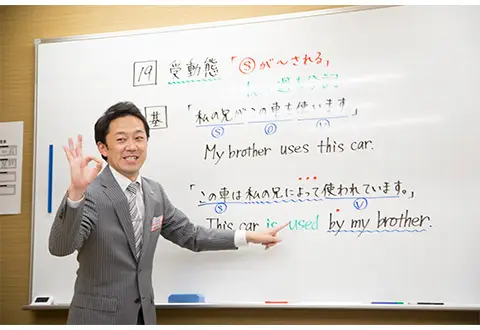 19 受動態 「Ⓢが〜される」
基 「私の兄がこの車を使います」
Ⓢ Ⓞ Ⓥ
My brother uses this car.
「この車は私の兄によって使われています。」
Ⓢ Ⓥ
This car is used by my brother.